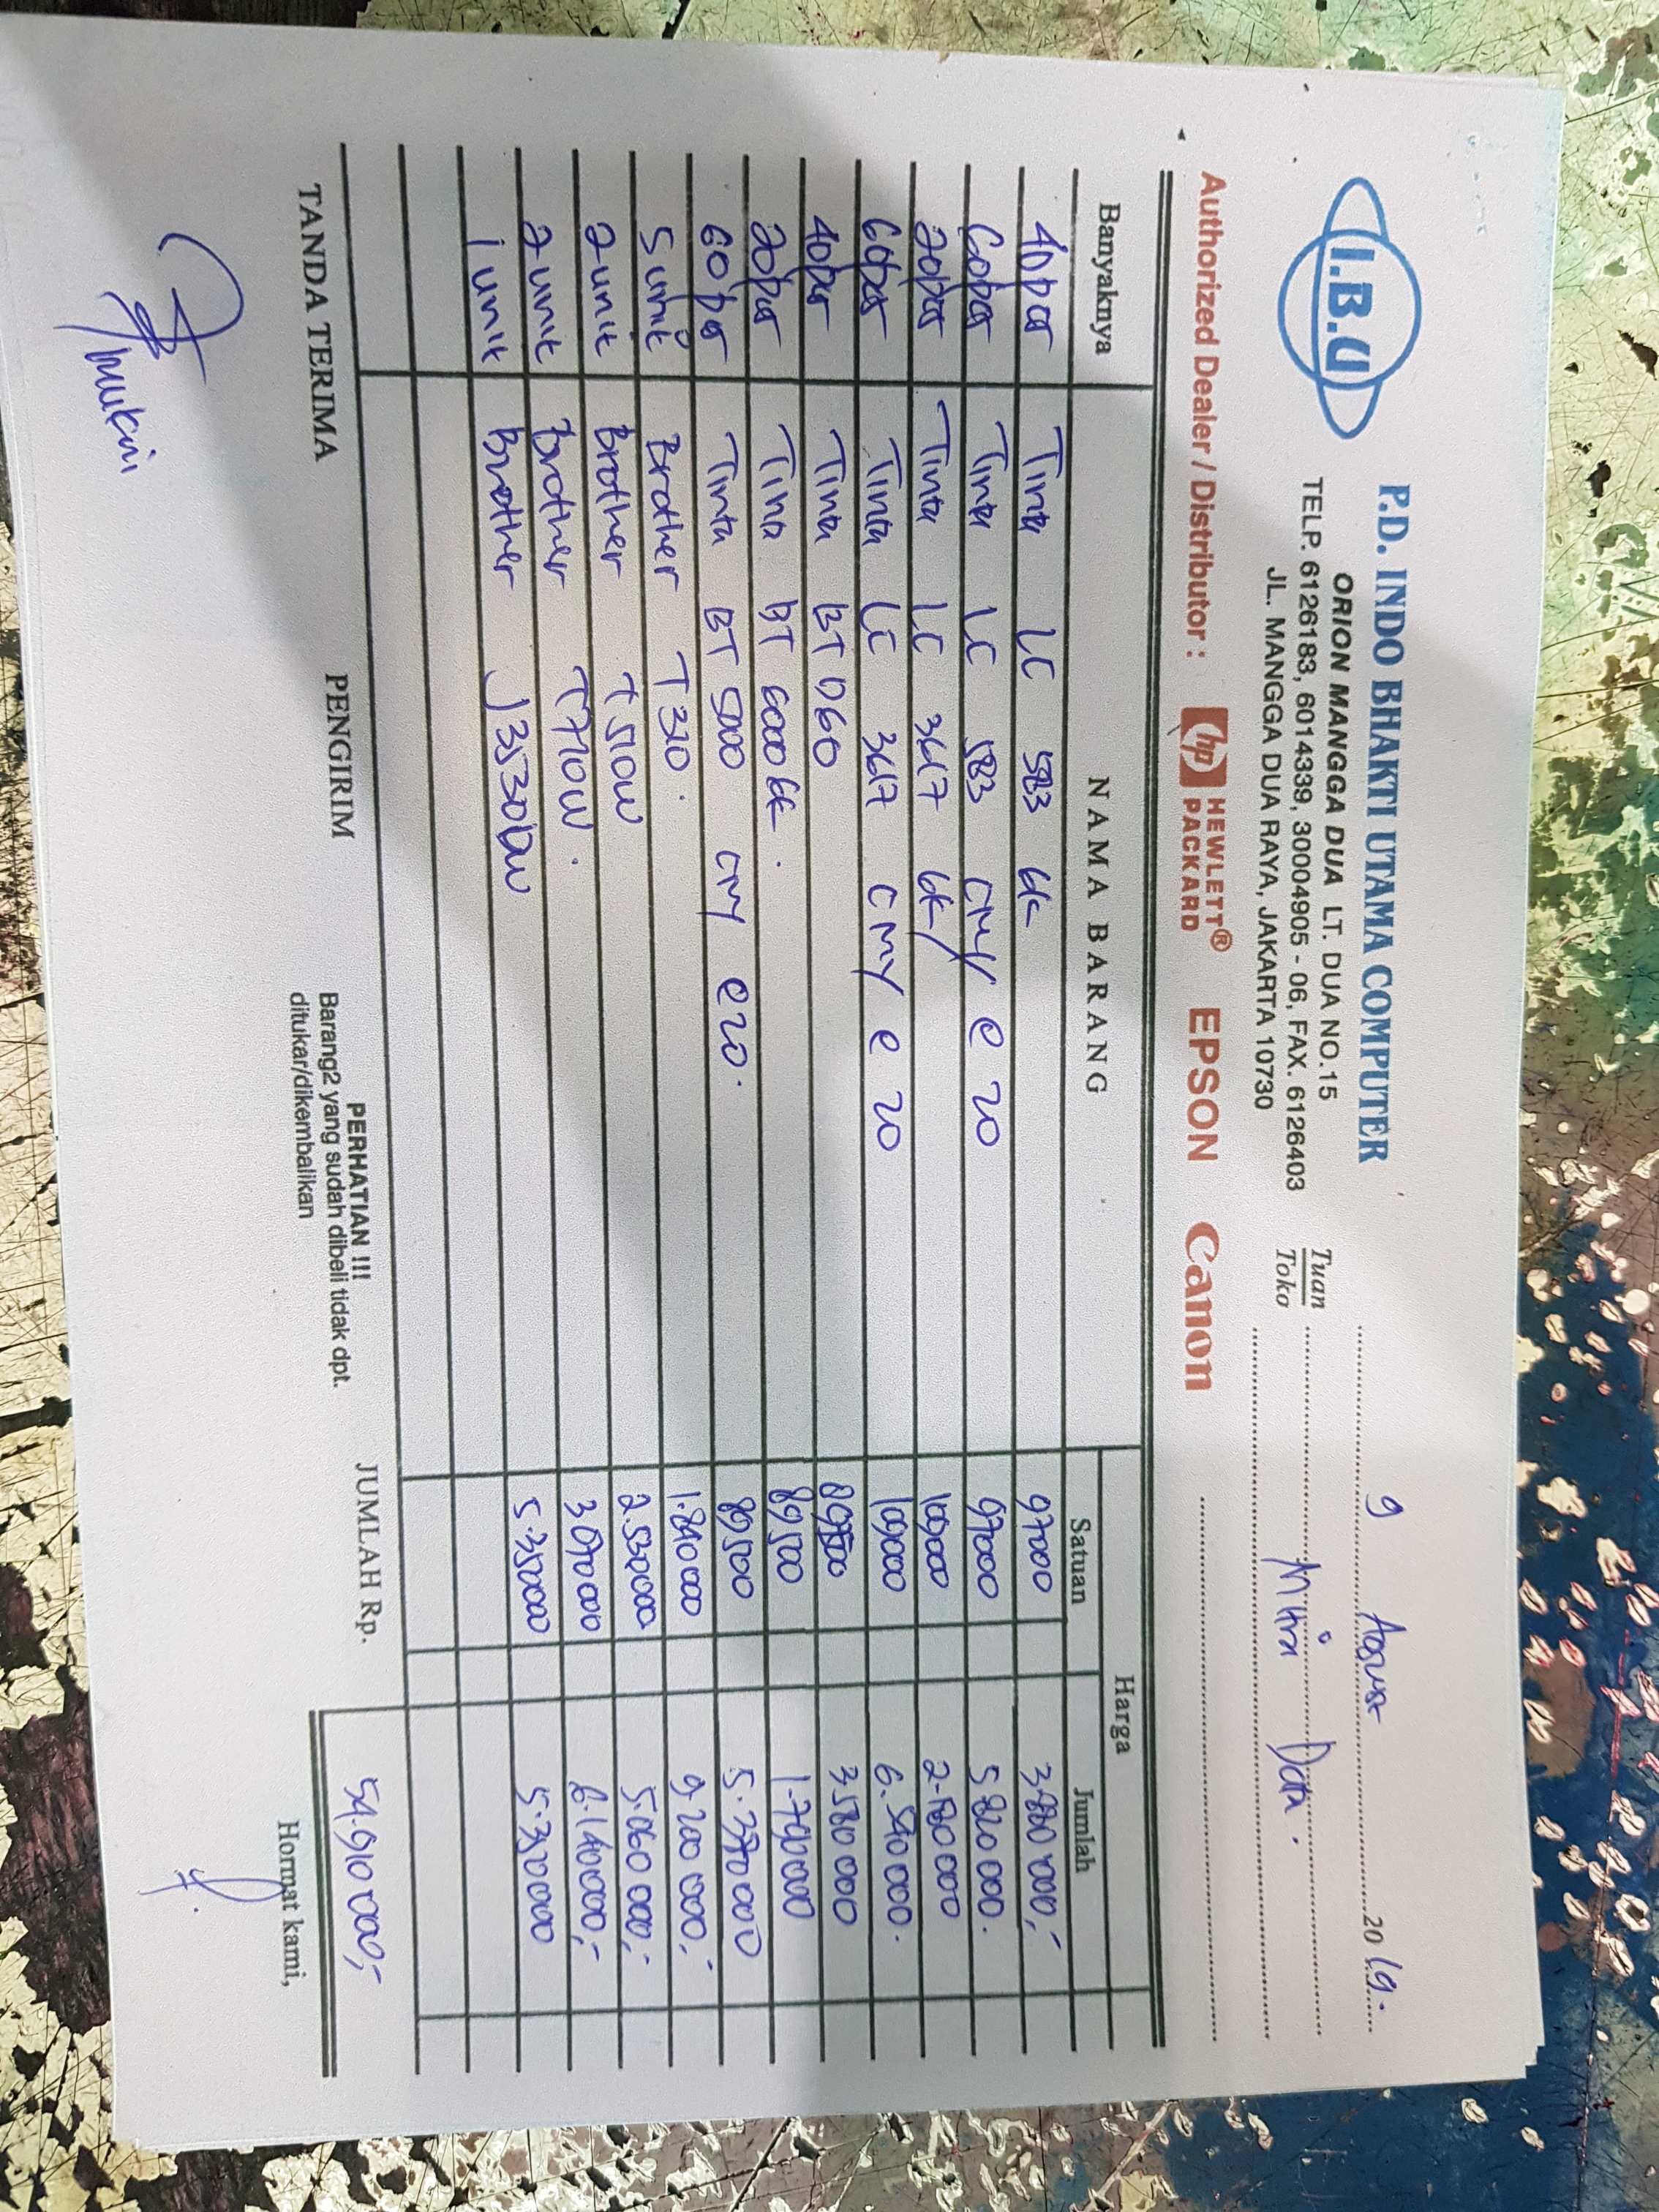 I.B.U
P.D. INDO BHAKTI UTAMA COMPUTER
ORION MANGGA DUA LT. DUA NO.15
TELP. 6126183, 6014339, 30004905 - 06, FAX. 6126403
JL. MANGGA DUA RAYA, JAKARTA 10730
9 Agust 2019.
Tuan
Toko
Mitra Data.
Authorized Dealer / Distributor : hp HEWLETT® PACKARD EPSON Canon
Banyaknya NAMA BARANG Harga
Satuan Jumlah
40 pcs Tinta LC 583 bk 97000 3.880 000,-
60pcs Tinta LC 583 CMY @ 20 97000 5 820 000.
20pcs Tinta LC 3617 bk 109000 2.180 000
60pcs Tinta LC 3617 CMY @ 20 109000 6.540 000.
40pcs Tinta BT D60 89500 3.580 000
20pcs Tinta BT 6000 bk. 89 500 1.790 000
60 pcs Tinta BT 5000 CMY @20. 89 500 5.370 000
5 unit Brother T310. 1.840 000 9.200 000,-
2 unit Brother T510W 2.530000 5.060 000,-
2 unit Brother T710W. 3 070 000 6.140 000,-
1 unit Brother J3530DW 5.350000 5.350 000
TANDA TERIMA PENGIRIM
PERHATIAN !!!
Barang2 yang sudah dibeli tidak dpt.
ditukar/dikembalikan
JUMLAH Rp. 54.910 000,-
Hormat kami,